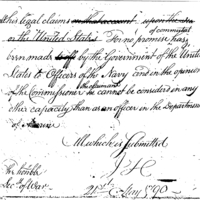 this legal claims on that account upon the
or the United States. For no promise has
been made by the Government of the Unite
States to Officers of the Navy and in the opinion
of the Commissioner he cannot be considered in any
other capacity than as an officer in the Department
of Marine
All which is Submitted
The honble
Secy of War